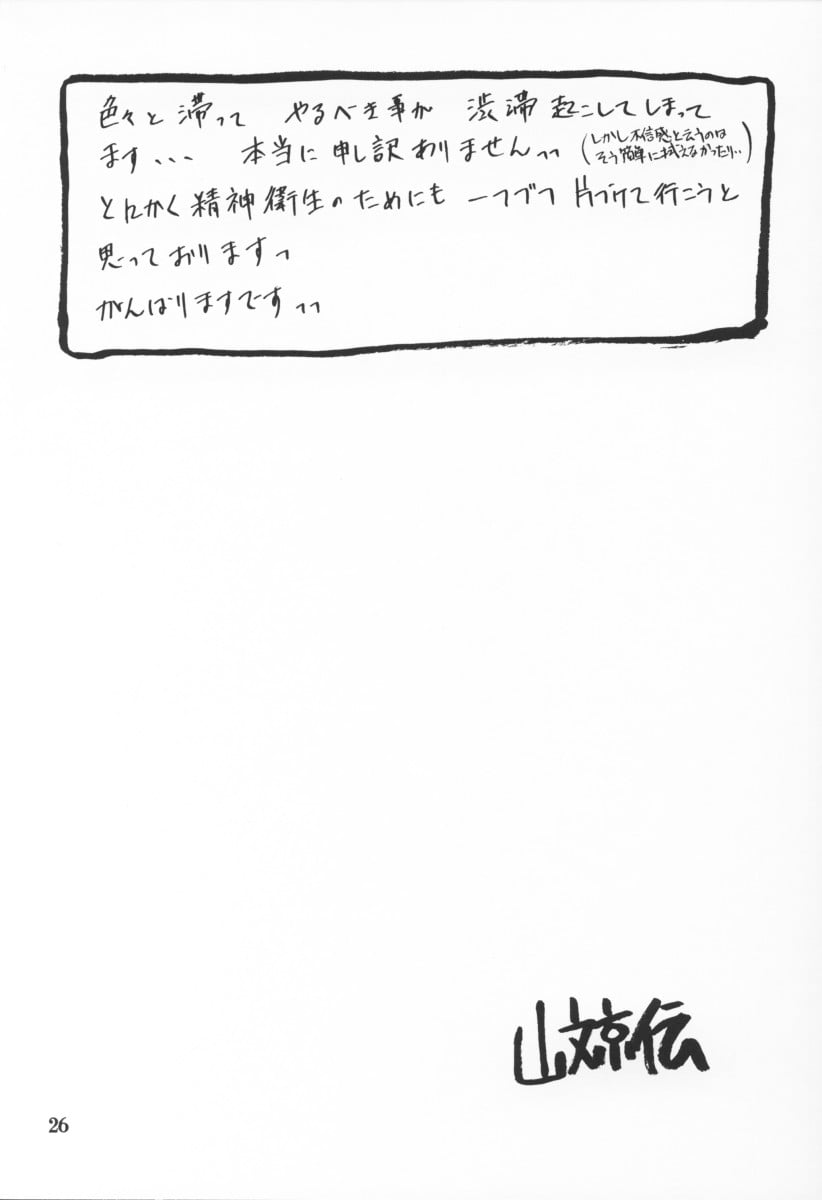 色々と滞って やるべき事が 渋滞起こしてしまって
ます、、、 本当に申し訳ありませんっっ
(しかし不信感と云うのは
そう簡単に拭えなかったり・・)
とにかく精神衛生のためにも 一つづつ 片づけて行こうと
思っておりますっ
がんばりますですっっ
山文京伝
26